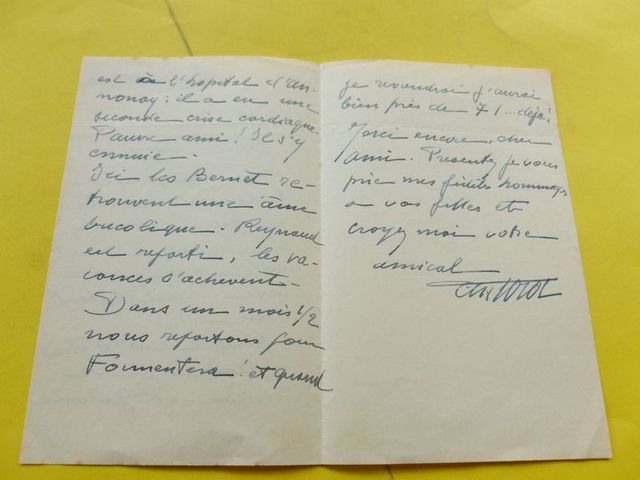 est à l'hopital d'An-
nonay : il a eu une
seconde crise cardiaque.
Pauvre ami ! Il s'y
ennuie.
Ici les Bernet re-
trouvent une âme
bucolique. Reynaud
est reparti, les va-
cances s'achèvent.
Dans un mois 1/2
nous repartons pour
Formentera ! et quand
je reviendrai j'aurai
bien près de 71... déjà !
Merci encore, cher
ami. Présentez je vous
prie mes fidèles hommages
à vos filles et
croyez moi votre
amical